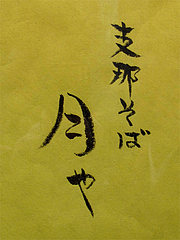 支那そば
月や